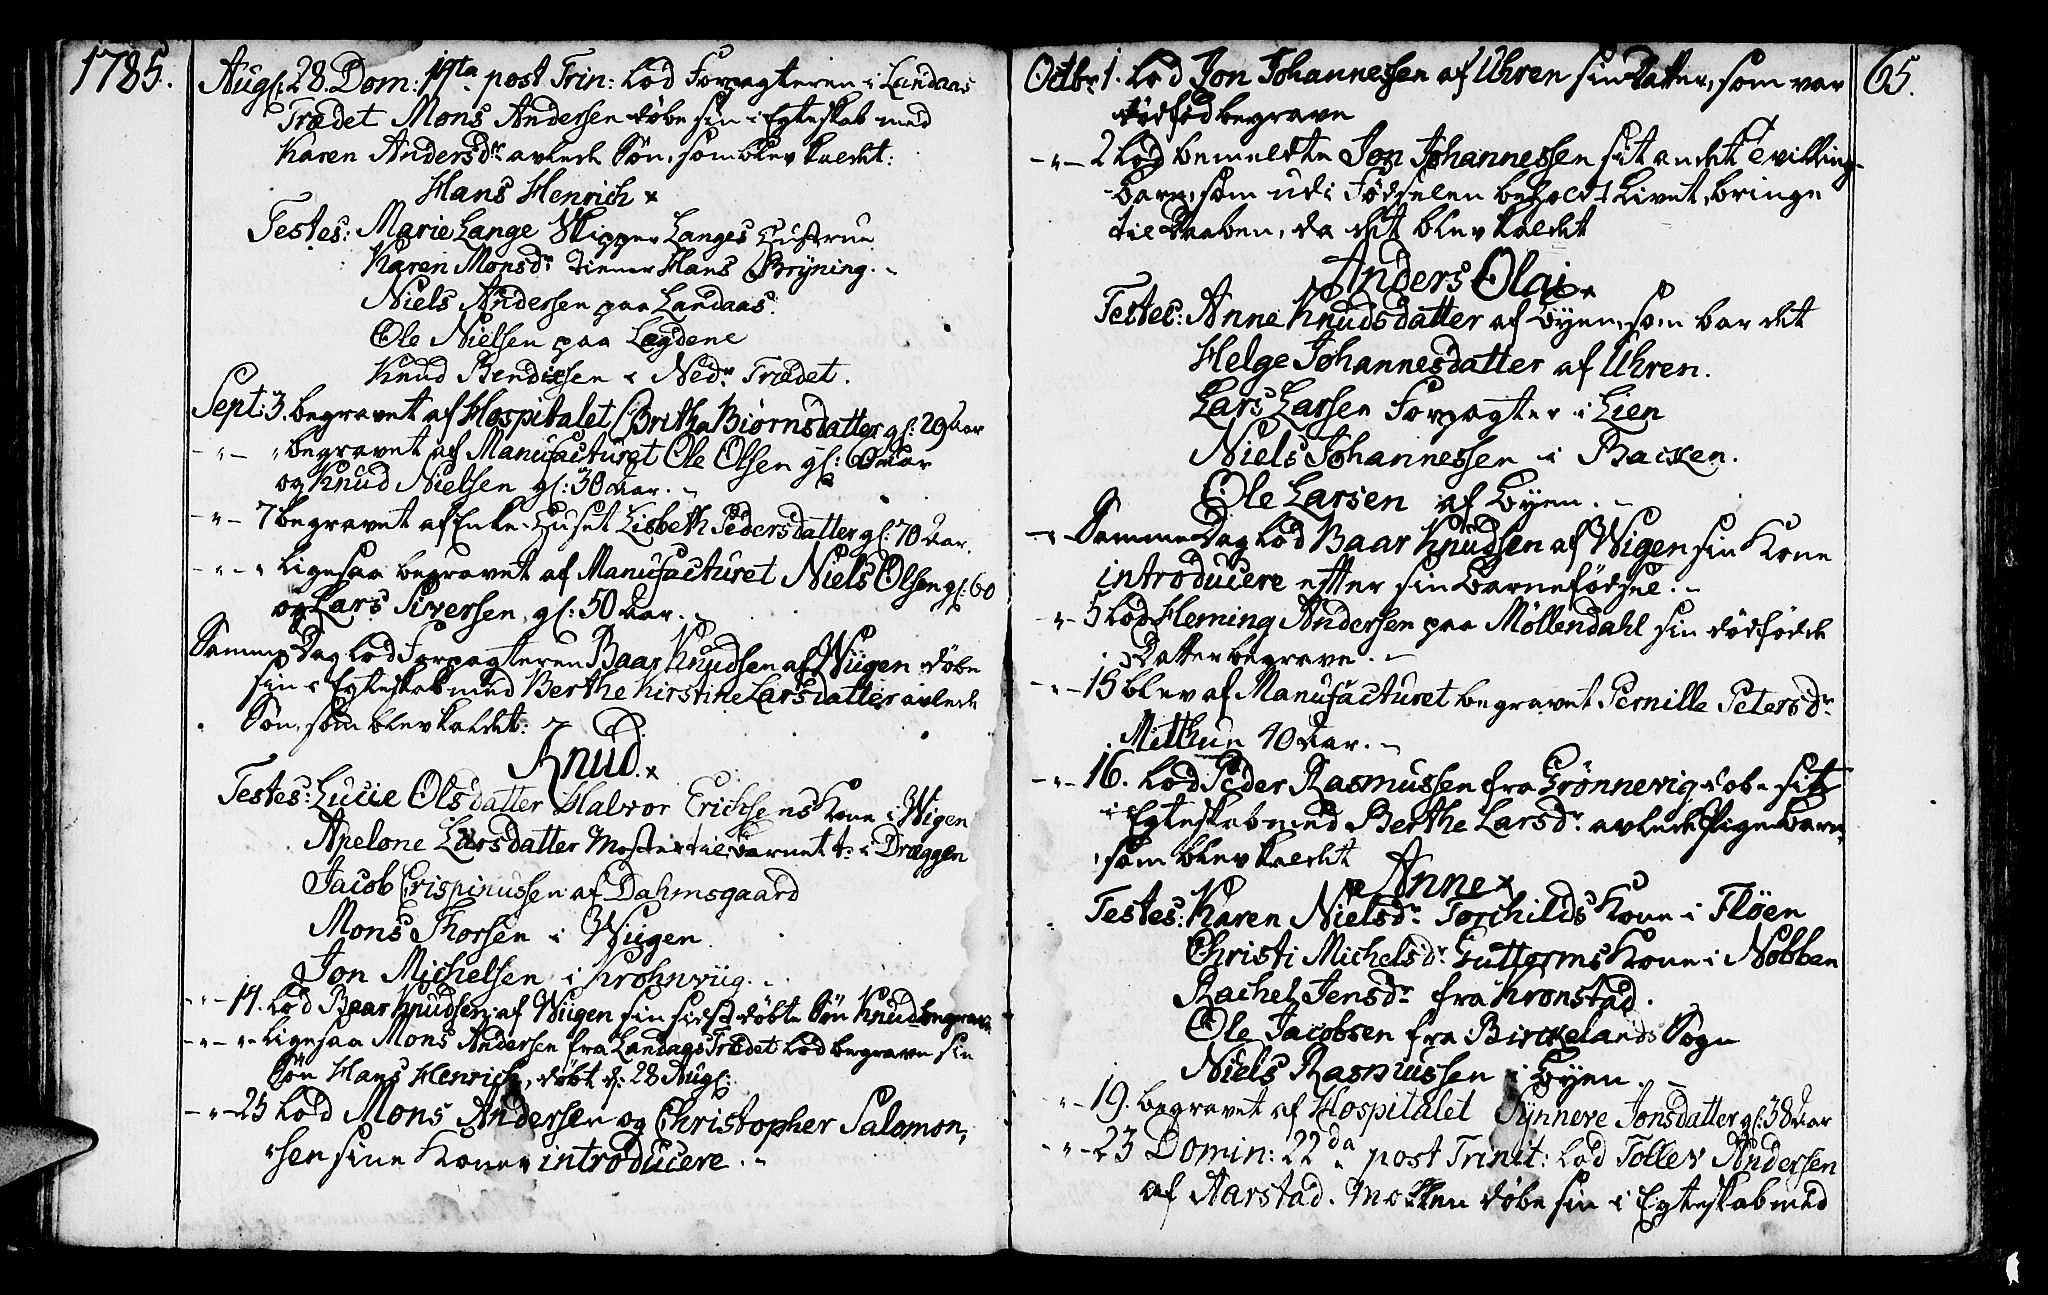 1785.
Augs: 28. Dom: 14ta post Trin: lod Forpagteren i Landaas
Trædet Mons Andersen døbe sin i Egteskab med
Karen Andersdr avlede Søn, som blev kaldet:
Hans Henrich
Testes: Marie Lange Skipper Langes Hustrue
Karen Monsdr tiener Hans Bryning.
Niels Andersen paa Landaas.
Ole Nielsen paa Legdene
Knud Bendixsen i Nedr Trædet.
Sept: 3. begravet af Hospitalet Britha Biørnsdatter gl: 29 Aar
- " - " begravet af Manufacturet Ole Olsen gl: 60 Aar
og Knud Nielsen gl: 30 Aar.
- " - 7 begravet af Enke-Huset Lisbeth Pedersdatter gl: 70 Aar.
- " - " Ligesaa begravet af Manufacturet Niels Olsen gl: 60
og Lars Siversen, gl: 50 Aar.
Samme Dag lod Forpagteren Baar Knudsen af Wiigen døbe
sin i Egteskab med Berthe Kirstine Larsdatter avlede
Søn, som blev kaldet:
Knud.
Testes: Lucie Olsdatter Halvor Erichsens Kone i Wigen
Apelone Larsdatter Moster til Barnet t: i Dræggen
Jacob Crispinussen af Dahmsgaard
Mons Thorsen i Wiigen
Jon Michelsen i Krohnviig.
- " - 14. lod Baar Knudsen af Wiigen sin sidst døbte Søn Knud begrave
- " - " Ligesaa Mons Andersen fra Landaas Trædet lod begrave sin
Søn Hans Henrich, døbt d: 28 Augs:
- " - 25 lod Mons Andersen og Christopher Salomon,
sen sine Koner introducere.
65.
Octbr 1. lod Jon Johannessen af Uhren sin Datter, som var
dødfød begrave
- " - 2 lod bemeldte Jon Johannessen sit andet Tvilling-
barn, som udi Fødselen beholdt Livet, bringe
til Daaben, da det blev kaldet
Anders Olai
Testes: Anne Knudsdatter af Byen, som bar det
Helge Johannesdatter af Uhren.
Lars Larsen Forpagter i Lien
Niels Johannessen i Backen.
Ole Larsen af Byen.
- " Samme Dag lod Baar Knudsen af Wigen sin Kone
introducere efter sin Barnefødsel.
- " - 5 lod Fleming Andersen paa Møllendahl sin dødfødde
Datter begrave.
- " - 15 blev af Manufacturet begravet Pernille Petersdr
Milthun 40 Aar.
- " - 16. lod Peder Rasmussen fra Grønnevig døbe sit
i Egteskab med Berthe Larsdr avlede Pigebarn,
som blev kaldet
Anne
Testes: Karen Nielsdr Torchilds Kone i Fløen
Christi Michelsdr Guttorms Kone i Nøbben
Rachel Jensdr fra Kronstad.
Ole Jacobsen fra Birckelands Sogn
Niels Rasmussen i Byen.
" - 19. begravet af Hospitalet Synneve Jonsdatter gl: 38 Aar
- " - 23 Domin: 22da post Trinit: lod Tollev Andersen
af Aarstad. Marken døbe sin i Egteskab med